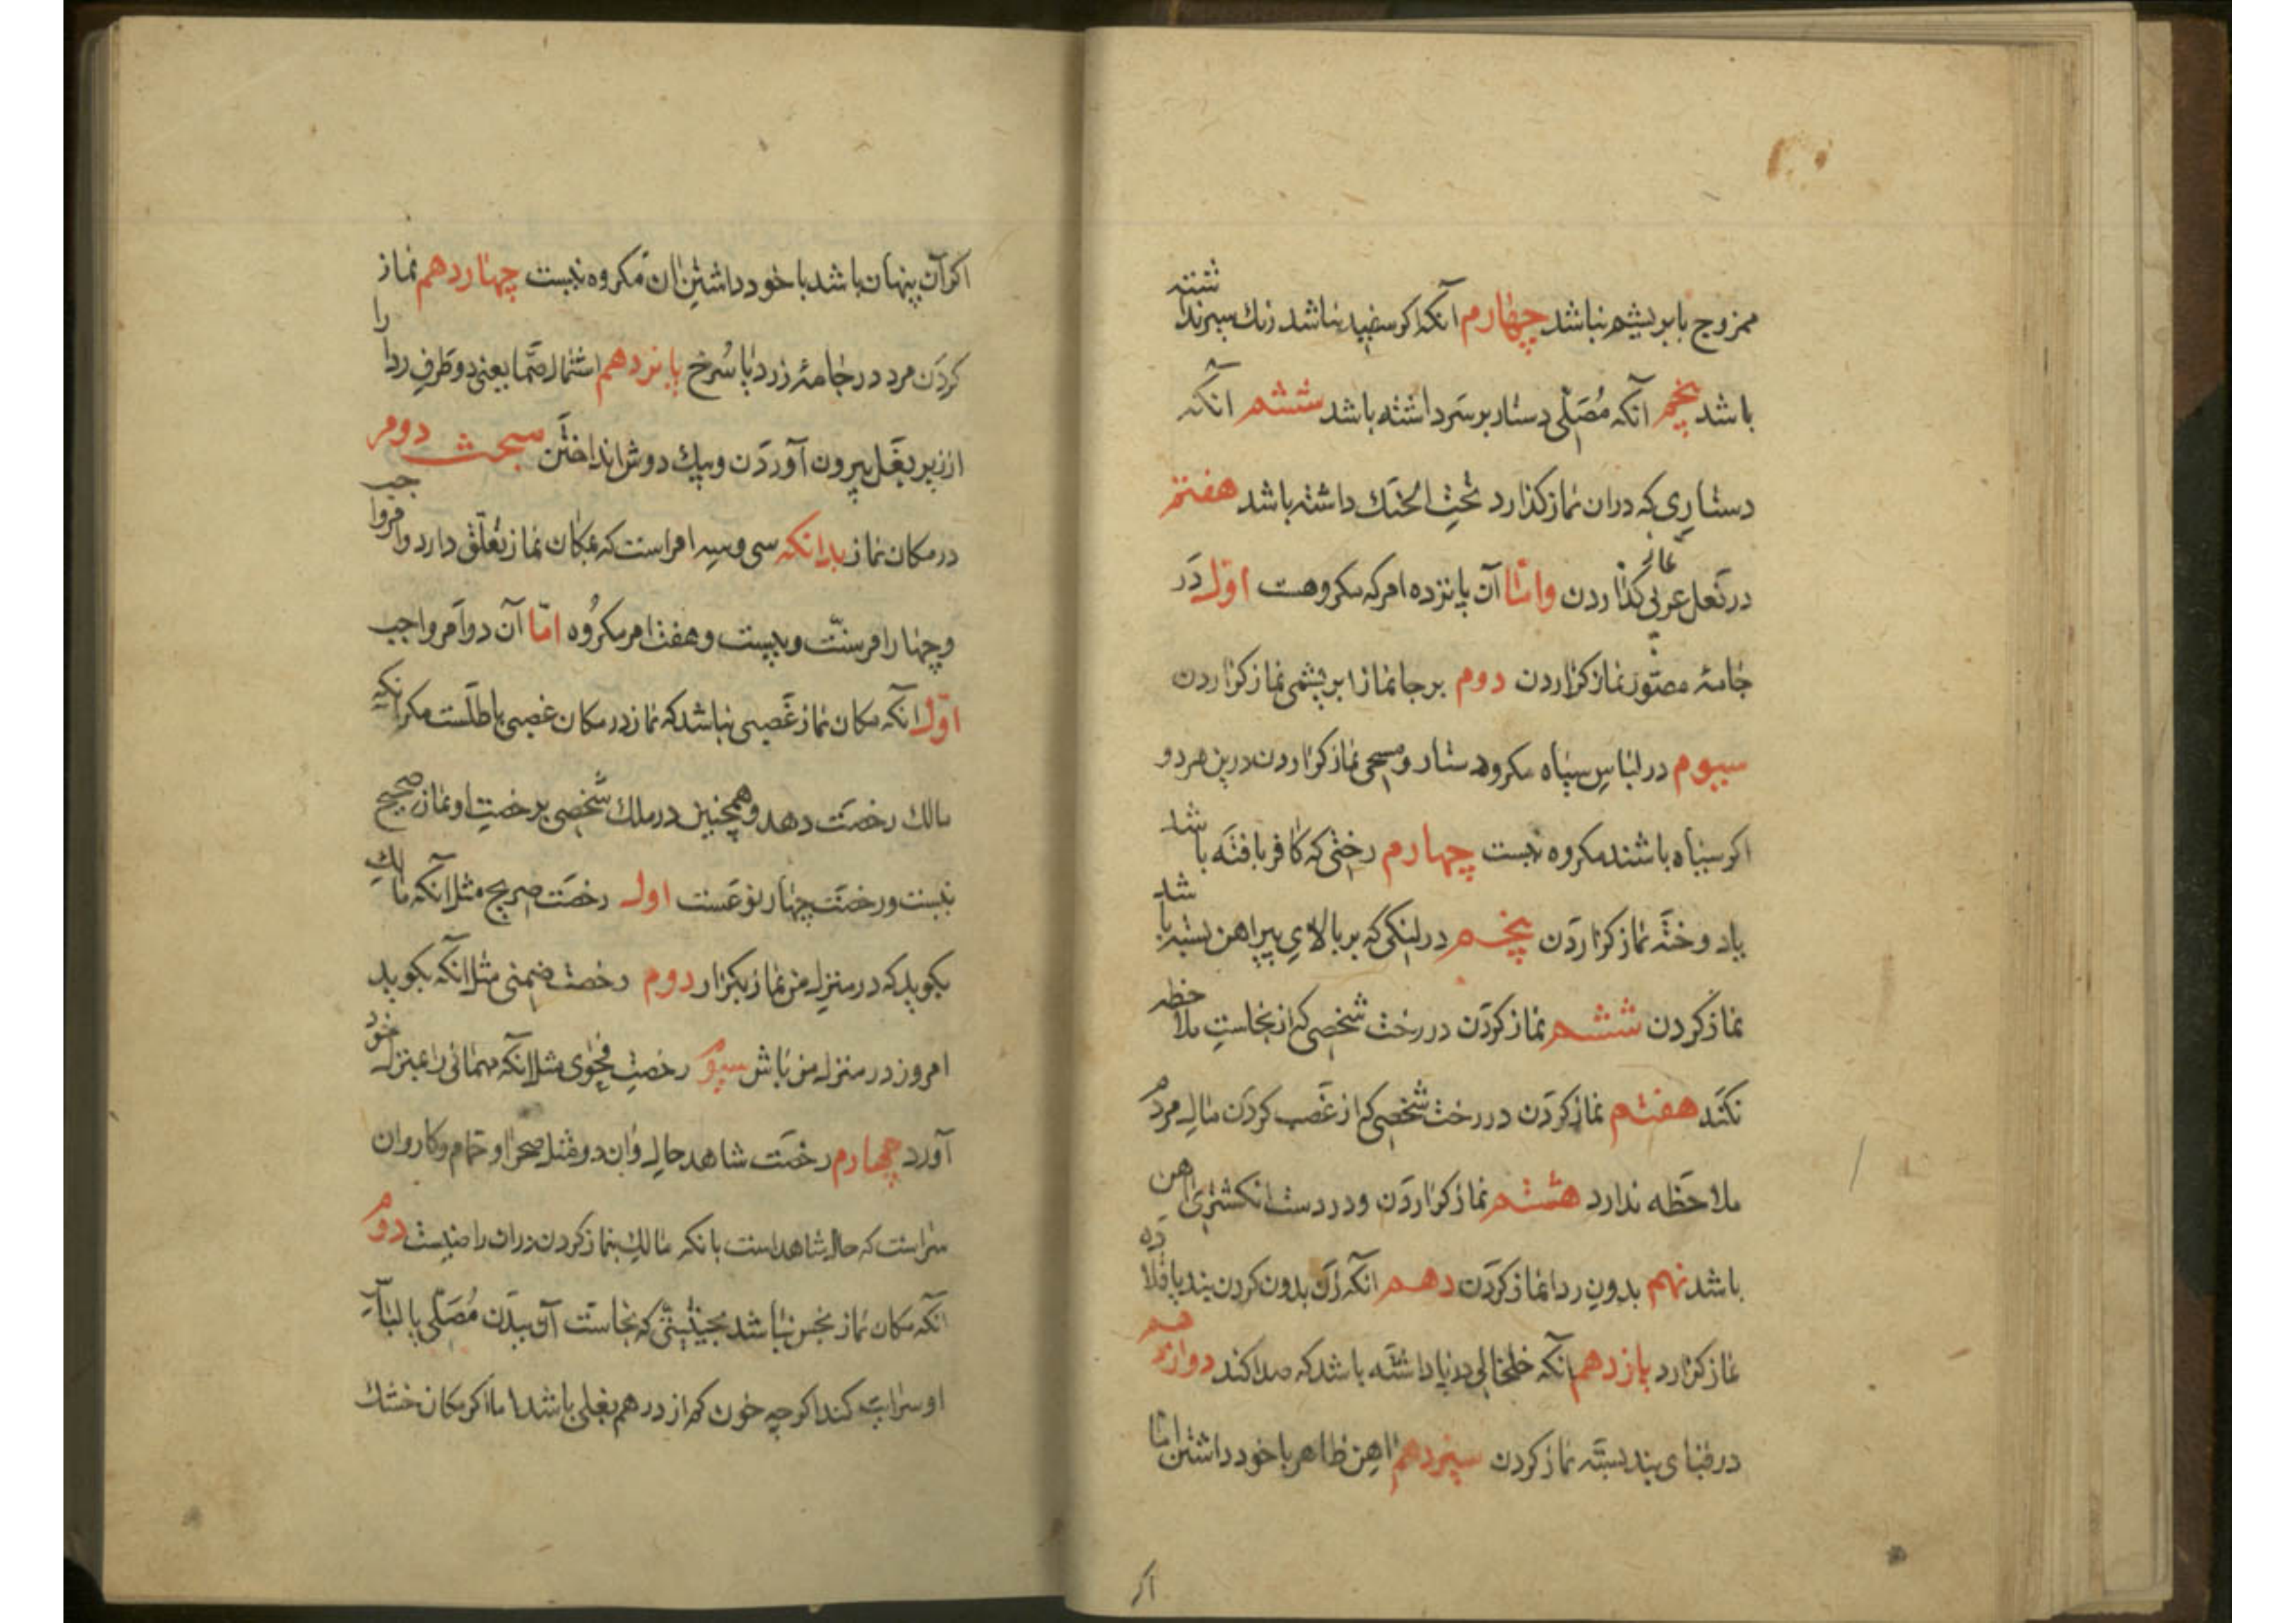 ممزوج بابریشم نباشد چهارم آنکه اکر سفید نباشد زنك سپرنداشته
باشد پنجم آنکه مُصَلّی دستار بر سَر داشته باشد ششم آنکه
دستارِی که در ان نماز کذارد تحت الحنك داشته باشد هفتم
در نَعل عربی نماز کذاردن وامّا آن پانزده امر که مکروهست اوّل دَر
جامۀ مصوّر نماز کزاردن دوم بر جانماز ابریشمی نماز کزاردن
سیوم در لباسِ سیاه مکروه دستار ومسحی نماز کزاردن درین هر دو
اکر سیاه باشند مکروه نیست چهارم رختی که کافر بافته باشد
یا دوخته نماز کزاردَن پنجم در لنکی که بر بالایِ پیراهن بسته باشد
نماز کردن ششم نماز کردَن در رخت شخصی که از نجاستِ ملاحظه
نکنَد هفتم نماز کردَن در رخت شخصی که از غَصب کردَن مالِ مردم
ملاحَظه ندارد هشتم نماز کزاردَن ودر دست انکشترِی آهن
باشد نهم بدونِ ردا نماز کردَن دهم آنکه زن بدون کردن بند یا قلاده
نماز کزارد یازدهم آنکه خلخالی در پا داشته باشد که صدا کند دوازدهم
در قبای بند بسته نماز کردن سیزدهم آهن ظاهر با خود داشتن امّا
اکر
اکر آن پنهان باشد با خود داشتن ان مکروه نیست چهاردهم نماز
کردَن مرد در جامۀ زرد یا سُرخ پانزدهم اشتمال صَمّا یعنی دو طَرفِ ردا را
از زیر بغَل بیرون آوردَن وبیك دوش انداختَن مبحث دوم
در مکان نماز بدانکه سی وسه امر است که بمکان نماز تعلّق دارد دو امر واجب
وچهار امر سنّت وبیست وهفت امر مکرُوه امّا آن دو اَمر واجب
اوّل آنکه مکان نماز غَصبی نباشد که نماز در مکان غصبی باطلَست مکر آنکه
مالك رخصَت دهد وهمچنین در ملك شَخصی بی رخصتِ او نماز صحیح
نیست ورخصَت چهار نوعَست اول رخصَت صریح مثلا آنکه مالكِ
بکوید که در منزل من نماز بکزار دوم رخصت ضمنی مثلا آنکه بکوید
امروز در منزل من باش سیوم رخصتِ فحوٰی مثلا آنکه مهمانی را بمنزل خود
آورد چهارم رخصَت شاهد حال وان در مثل صحرا وحمام وکاروان
سراست که حال شاهد است بانکه مالك بنماز کردن دران راضیست دوم
آنکه مکان نماز نجس نباشد بحیثیتی که نجاست آن ببدَن مُصَلّی یا لباس
او سرایت کند اکر چه خون کم از درهم بغلی باشد اما اکر مکان خشك